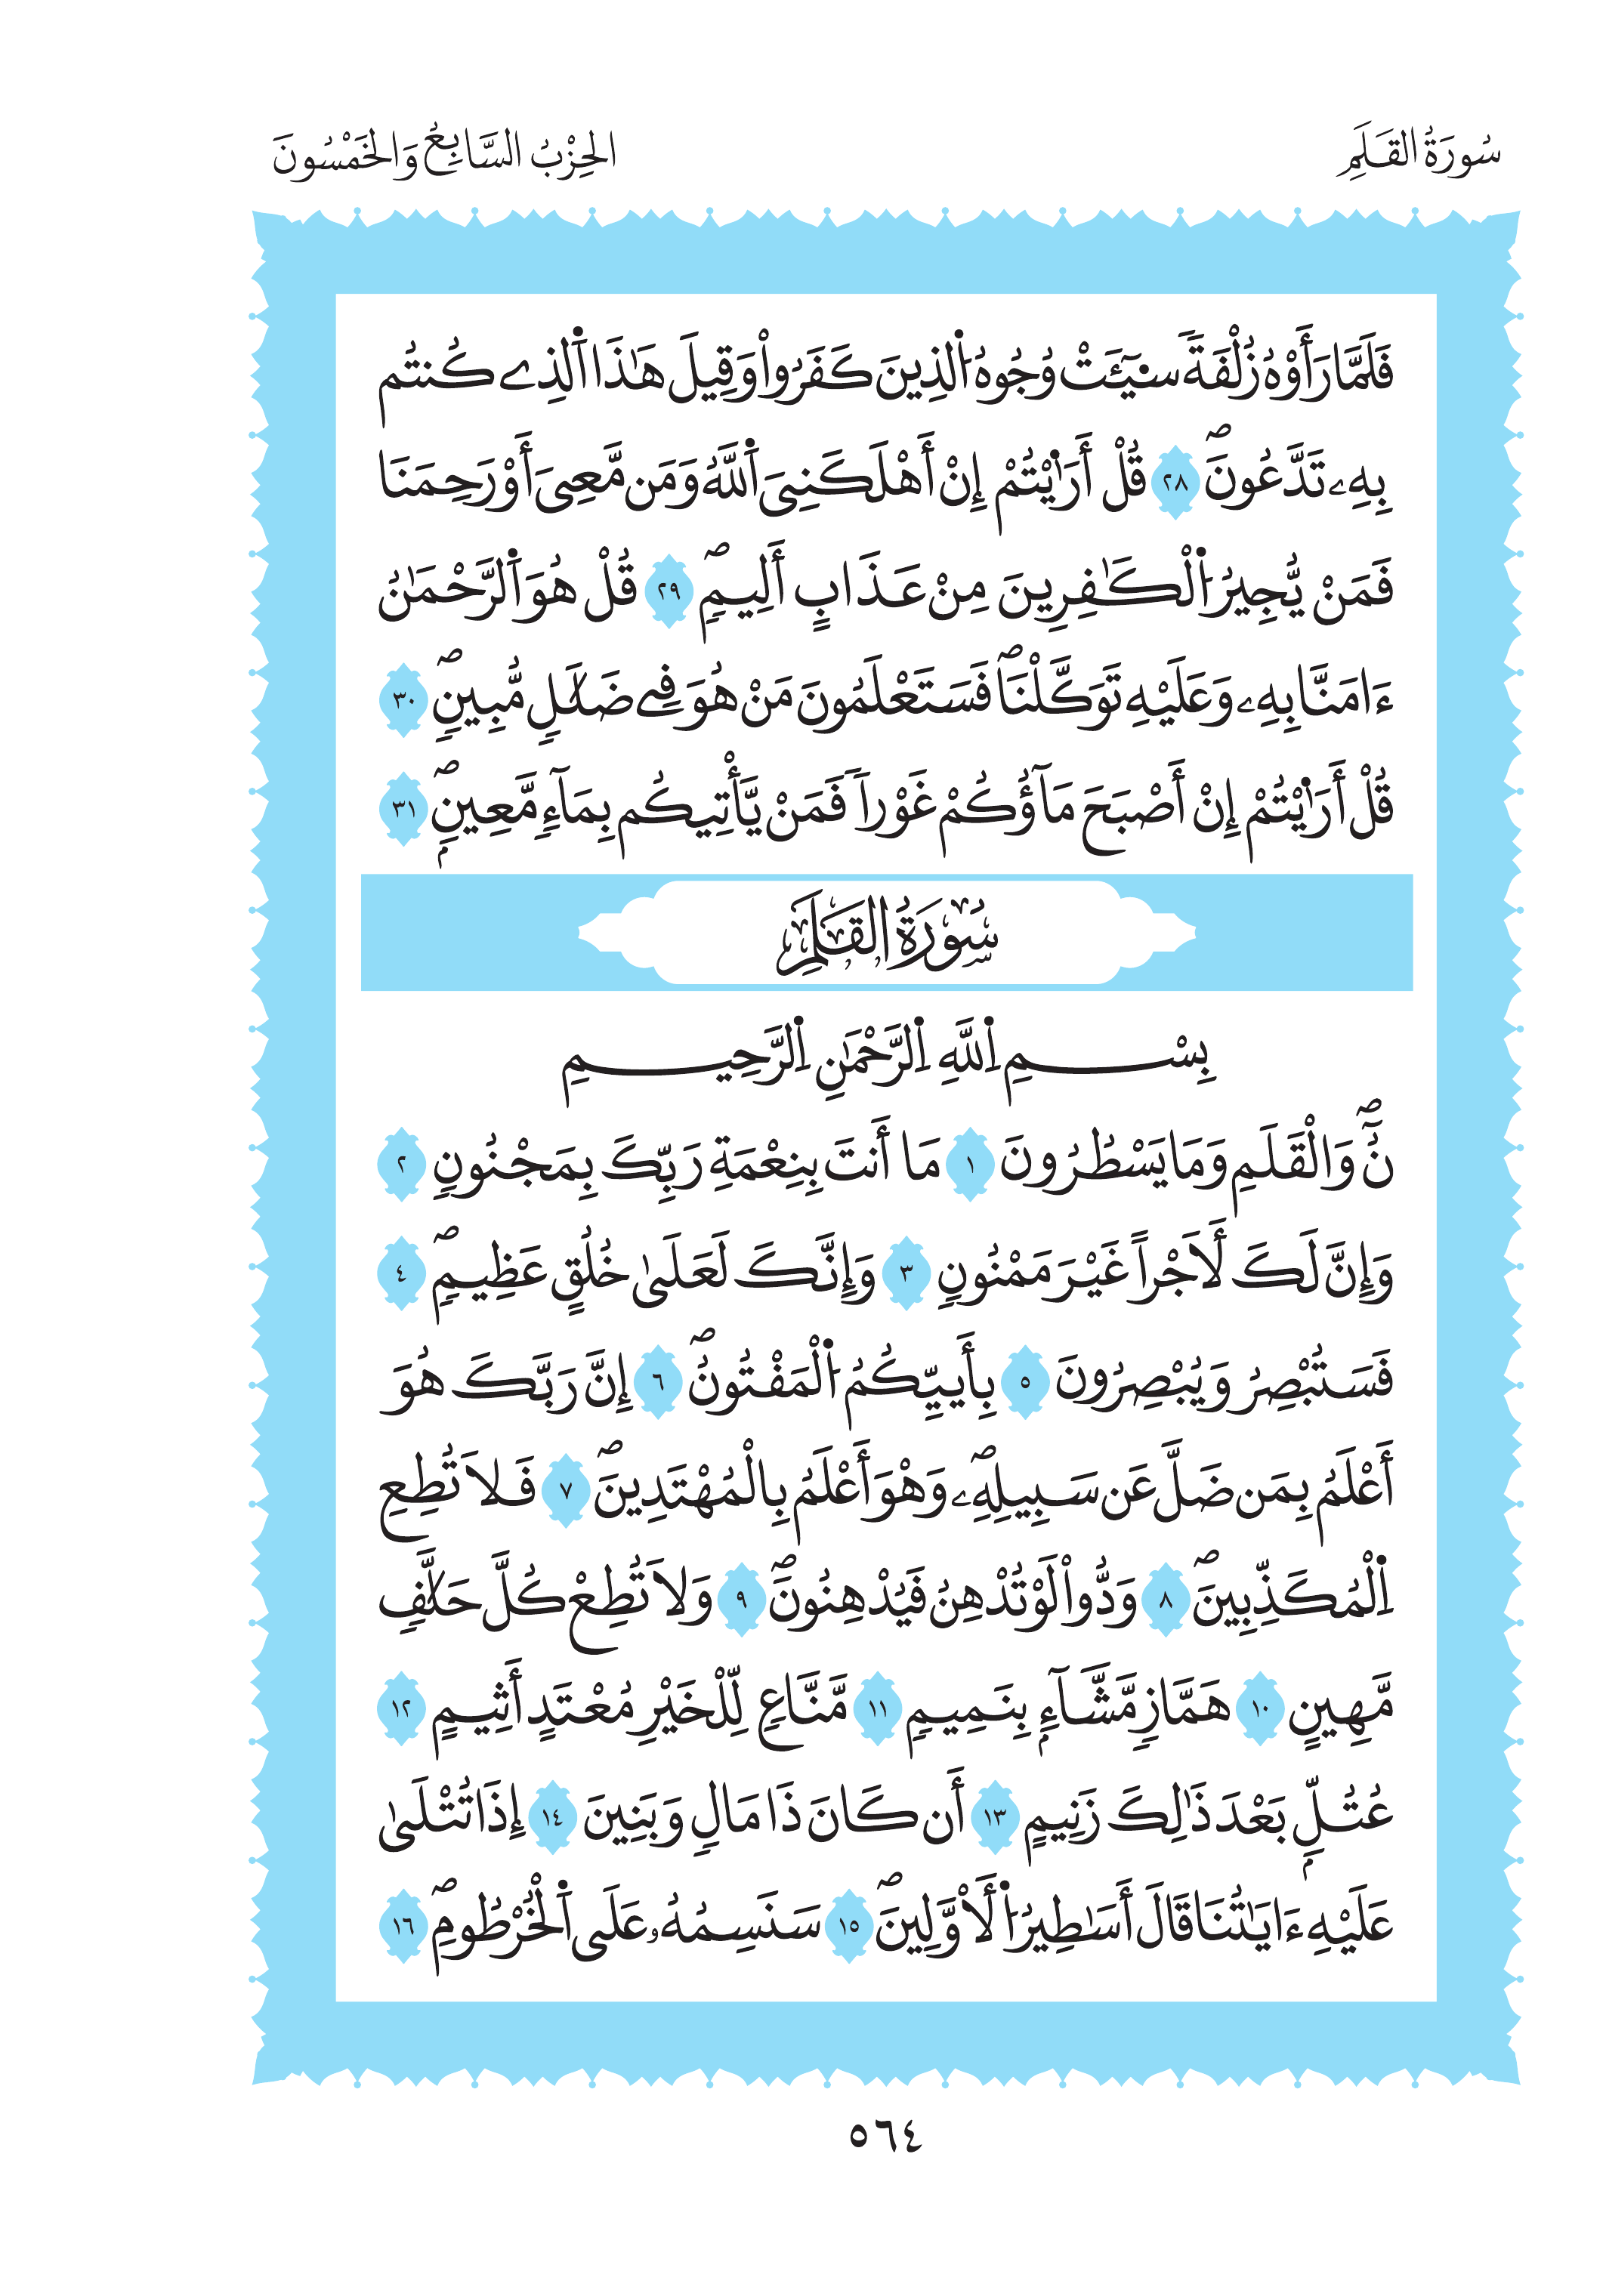 سُورَةُ القَلَمِ
الحِزْبُ السَّابِعُ وَالخَمْسُونَ
فَلَمَّا رَأَوْهُ زُلْفَةٗ سِيٓـَٔتْ وُجُوهُ اُ۬لذِينَ كَفَرُواْ وَقِيلَ هَٰذَا اَ۬لذِے كُنتُم
بِهِۦ تَدَّعُونَۖ ٢٨ قُلْ أَرَٰٓيْتُمْ إِنْ أَهْلَكَنِيَ اَ۬للَّهُ وَمَن مَّعِيَ أَوْ رَحِمَنَا
فَمَنْ يُّجِيرُ اُ۬لْكَٰفِرِينَ مِنْ عَذَابٍ أَلِيمٖۖ ٢٩ قُلْ هُوَ اَ۬لرَّحْمَٰنُ
ءَامَنَّا بِهِۦ وَعَلَيْهِ تَوَكَّلْنَاۖ فَسَتَعْلَمُونَ مَنْ هُوَ فِے ضَلَٰلٖ مُّبِينٖۖ ٣٠
قُلْ أَرَٰيْتُمْ إِنْ أَصْبَحَ مَآؤُكُمْ غَوْراٗ فَمَنْ يَّأْتِيكُم بِمَآءٖ مَّعِينِۢۖ ٣١
سُورَةُ القَلَمِ
بِسْمِ اِ۬للَّهِ اِ۬لرَّحْمَٰنِ اِ۬لرَّحِيمِ
نَٓۖ وَالْقَلَمِ وَمَا يَسْطُرُونَ ١ مَا أَنتَ بِنِعْمَةِ رَبِّكَ بِمَجْنُونٖ ٢
وَإِنَّ لَكَ لَأَجْراً غَيْرَ مَمْنُونٖ ٣ وَإِنَّكَ لَعَلَىٰ خُلُقٍ عَظِيمٖۖ ٤
فَسَتُبْصِرُ وَيُبْصِرُونَ ٥ بِأَييِّكُمُ اُ۬لْمَفْتُونُۖ ٦ إِنَّ رَبَّكَ هُوَ
أَعْلَمُ بِمَن ضَلَّ عَن سَبِيلِهِۦۖ وَهْوَ أَعْلَمُ بِالْمُهْتَدِينَۖ ٧ فَلَا تُطِعِ
اِ۬لْمُكَذِّبِينَۖ ٨ وَدُّواْ لَوْ تُدْهِنُ فَيُدْهِنُونَۖ ٩ وَلَا تُطِعْ كُلَّ حَلَّافٖ
مَّهِينٍ ١٠ هَمَّازٖ مَّشَّآءِۢ بِنَمِيمٖ ١١ مَّنَّاعٖ لِّلْخَيْرِ مُعْتَدٍ أَثِيمٍ ١٢
عُتُلِّۢ بَعْدَ ذَٰلِكَ زَنِيمٍ ١٣ أَن كَانَ ذَا مَالٖ وَبَنِينَ ١٤ إِذَا تُتْلَىٰ
عَلَيْهِ ءَايَٰتُنَا قَالَ أَسَٰطِيرُ اُ۬لَأوَّلِينَۖ ١٥ سَنَسِمُهُۥ عَلَى اَ۬لْخُرْطُومِۖ ١٦
٥٦٤